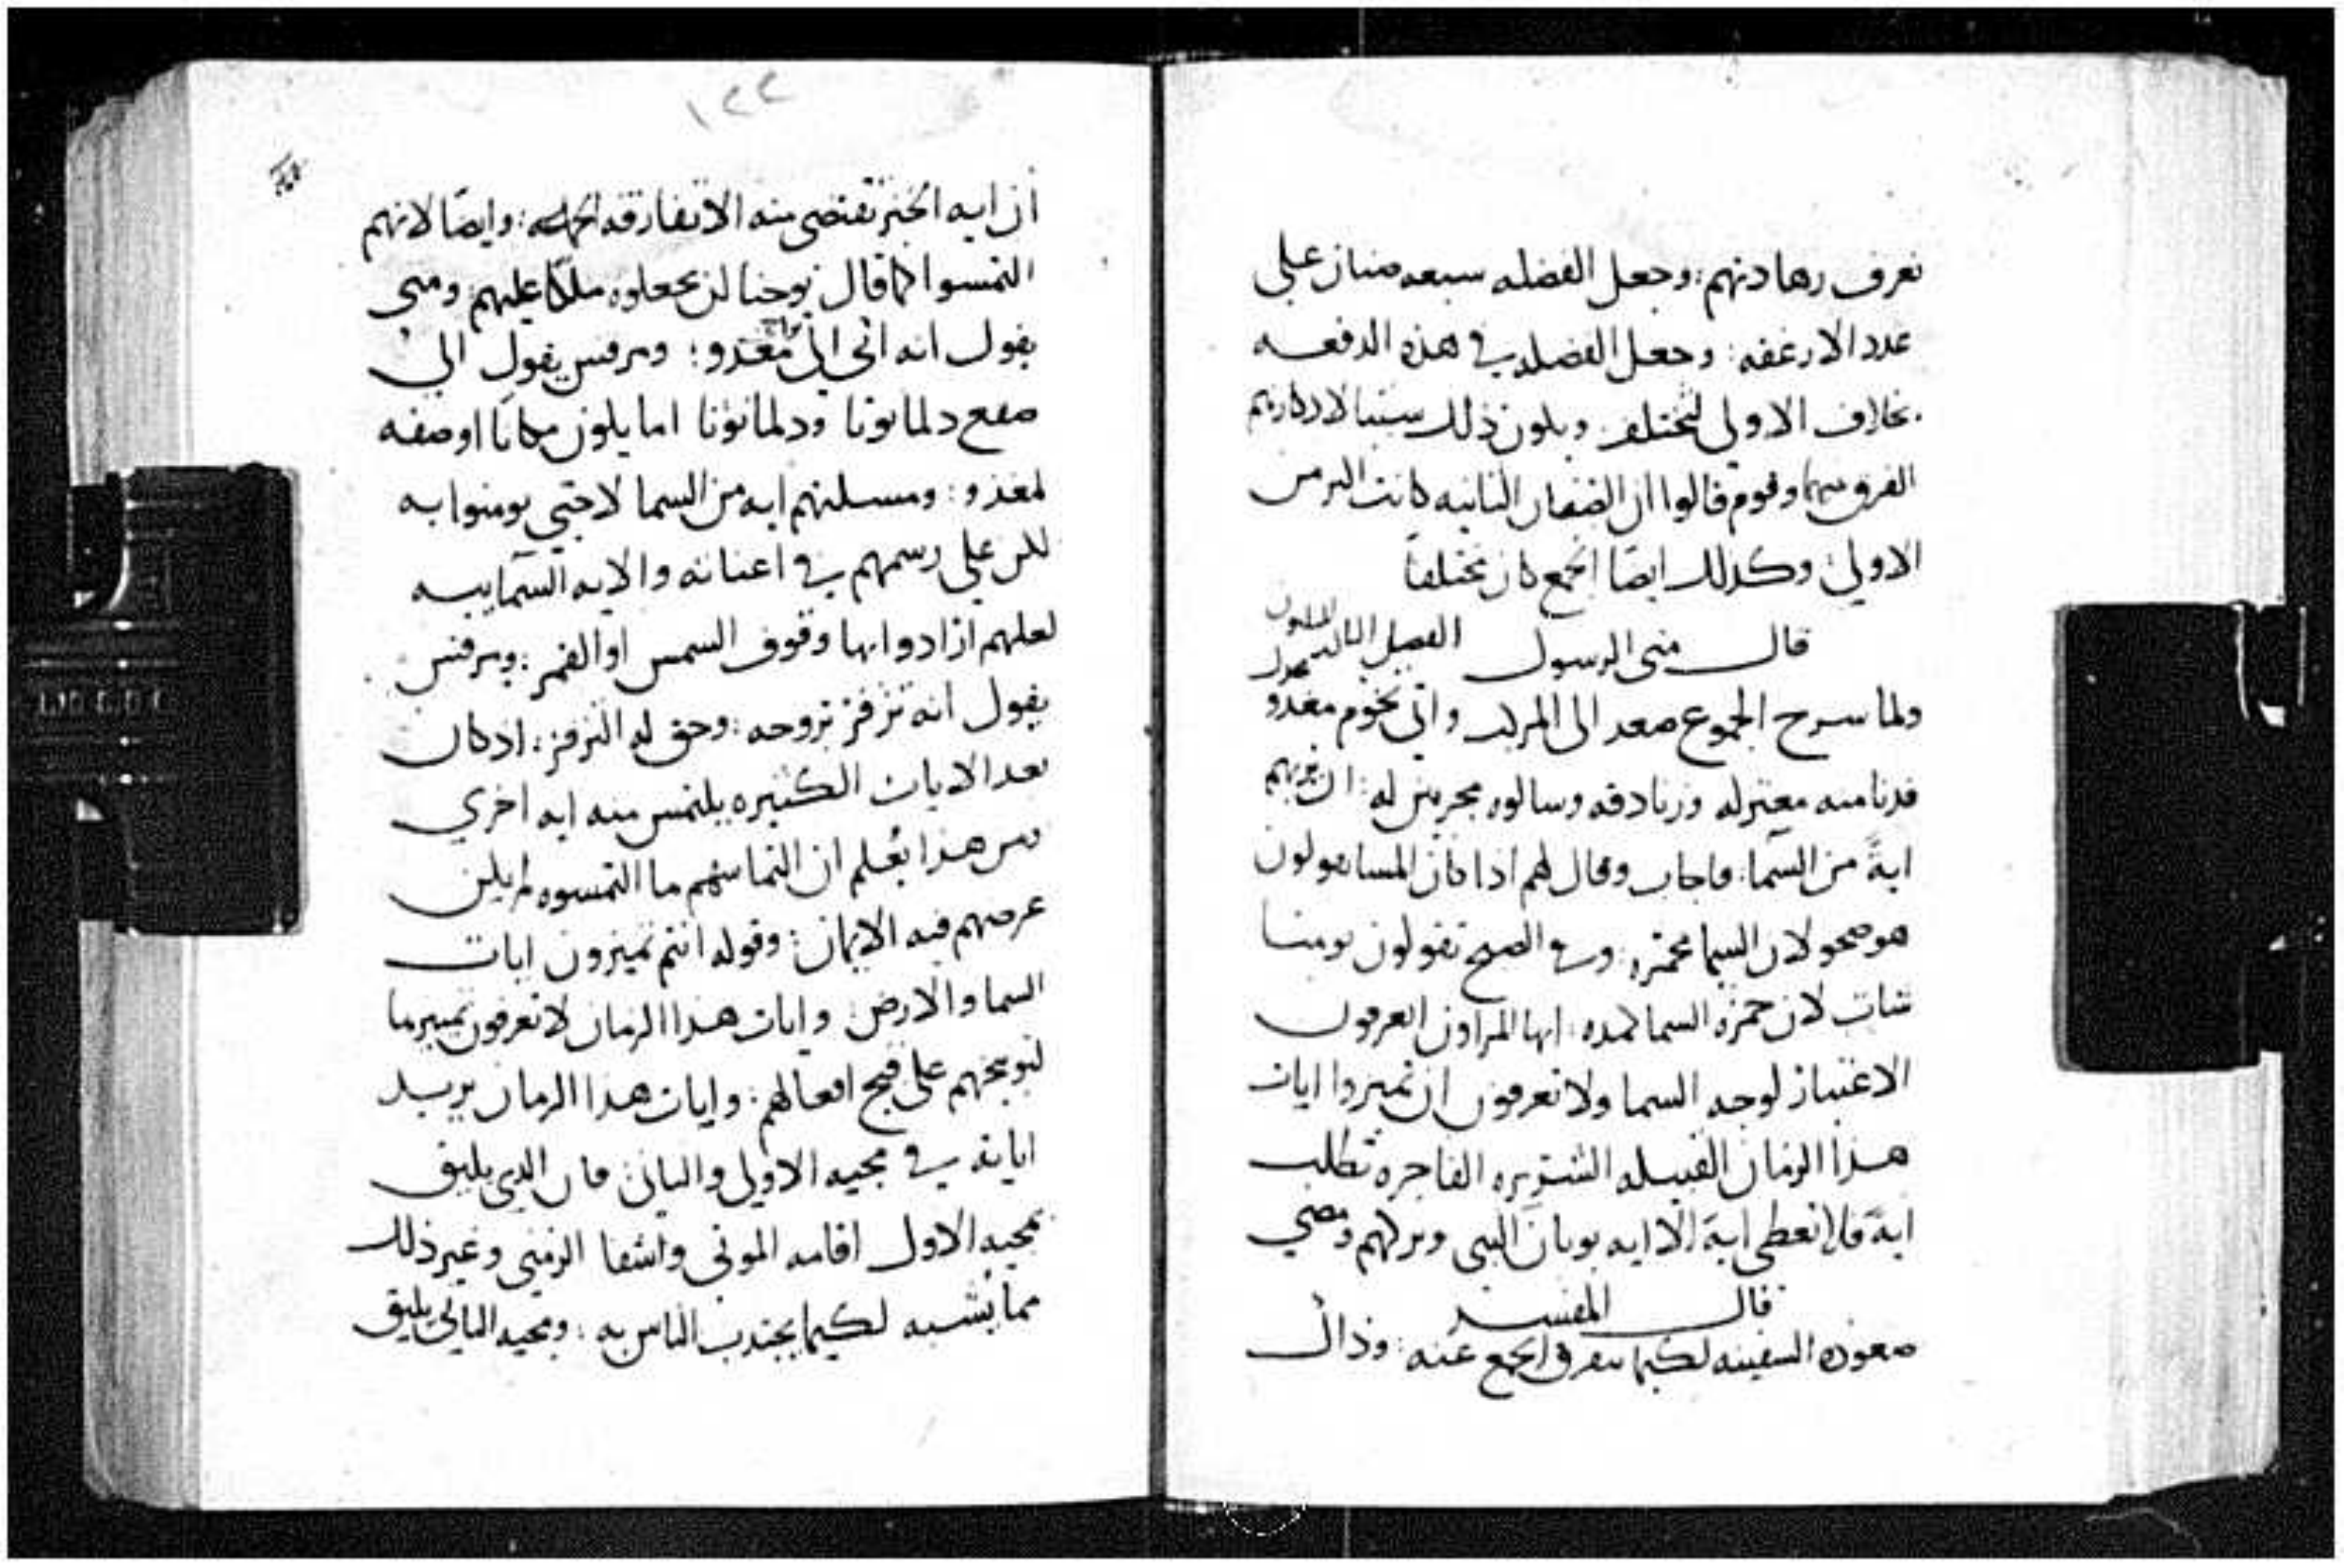 تعرف زهادتهم: وجعل الفضله سبعه صنان على
عدد الارغفه: وجعل الفضله في هذه الدفعه
بخلاف الاولى لتختلف ويكون ذلك سببا لادكارهم
الفرق بينهما وقوم قالوا ان القفاف الثانيه كانت اكبر من
الاولى وكذلك ايضًا الجمع كان مختلفًا
قال متى الرسول الفصل الثالث
ولما سرح الجموع صعد الى المركب واتى تخوم مغدو
فدنا منه معتزله وزنادقه وسالوه مجربين له: ان يريهم
ايةً من السما: فاجاب وقال لهم اذا كان المسا تقولون
هو صحو لان السما محمره: وفي الصبح تقولون يومنا
شات لان حمرة السما كمده: ايها المراون اتعرفون
الاعتبار لوجه السما ولا تعرفون ان تميزوا ايات
هذا الزمان القبيله الشريره الفاجره تطلب
اية فلا تعطى اية الا ايه يونان النبي وتركهم ومضى
قال المفسر
صعوده السفينه لكيما يتفرق الجمع عنه: وذاك
١٢٢
ان ايه الخبز تقتضي منه الا تفارقه الجمله: وايضًا لانهم
التمسوا كما قال يوحنا ان يجعلوه ملكا عليهم ومتى
يقول انه اتى الى مغدو: ومرقس يقول الى
صقع دلمانوتا ودلمانوتا اما يكون مكانا او صفه
لمغدو: ومسلتهم ايه من السما لا حتى يومنوا به
لكن على رسمهم في اعناته والايه السماييه
لعلهم ارادوا بها وقوف الشمس او القمر: ومرقس
يقول انه تزفر بروحه: وحق له التزفر: اذ كان
بعد الايات الكثيره يلتمس منه ايه اخرى
فمن هذا يُعلم ان التماسهم ما التمسوه لم يكن
غرضهم فيه الايمان: وقوله انتم تميزون ايات
السما والارض: وايات هذا الزمان لا تعرفون تمييزها
لتوبيخهم على قبح افعالهم: وايات هذا الزمان يريد
اياته في مجيه الاولى والثاني فان الذي يليق
بمجيه الاول اقامه الموتى واشفا الزمنى وغير ذلك
مما يشبه لكيما يجتذب الناس به: ومجيه الثاني يليق